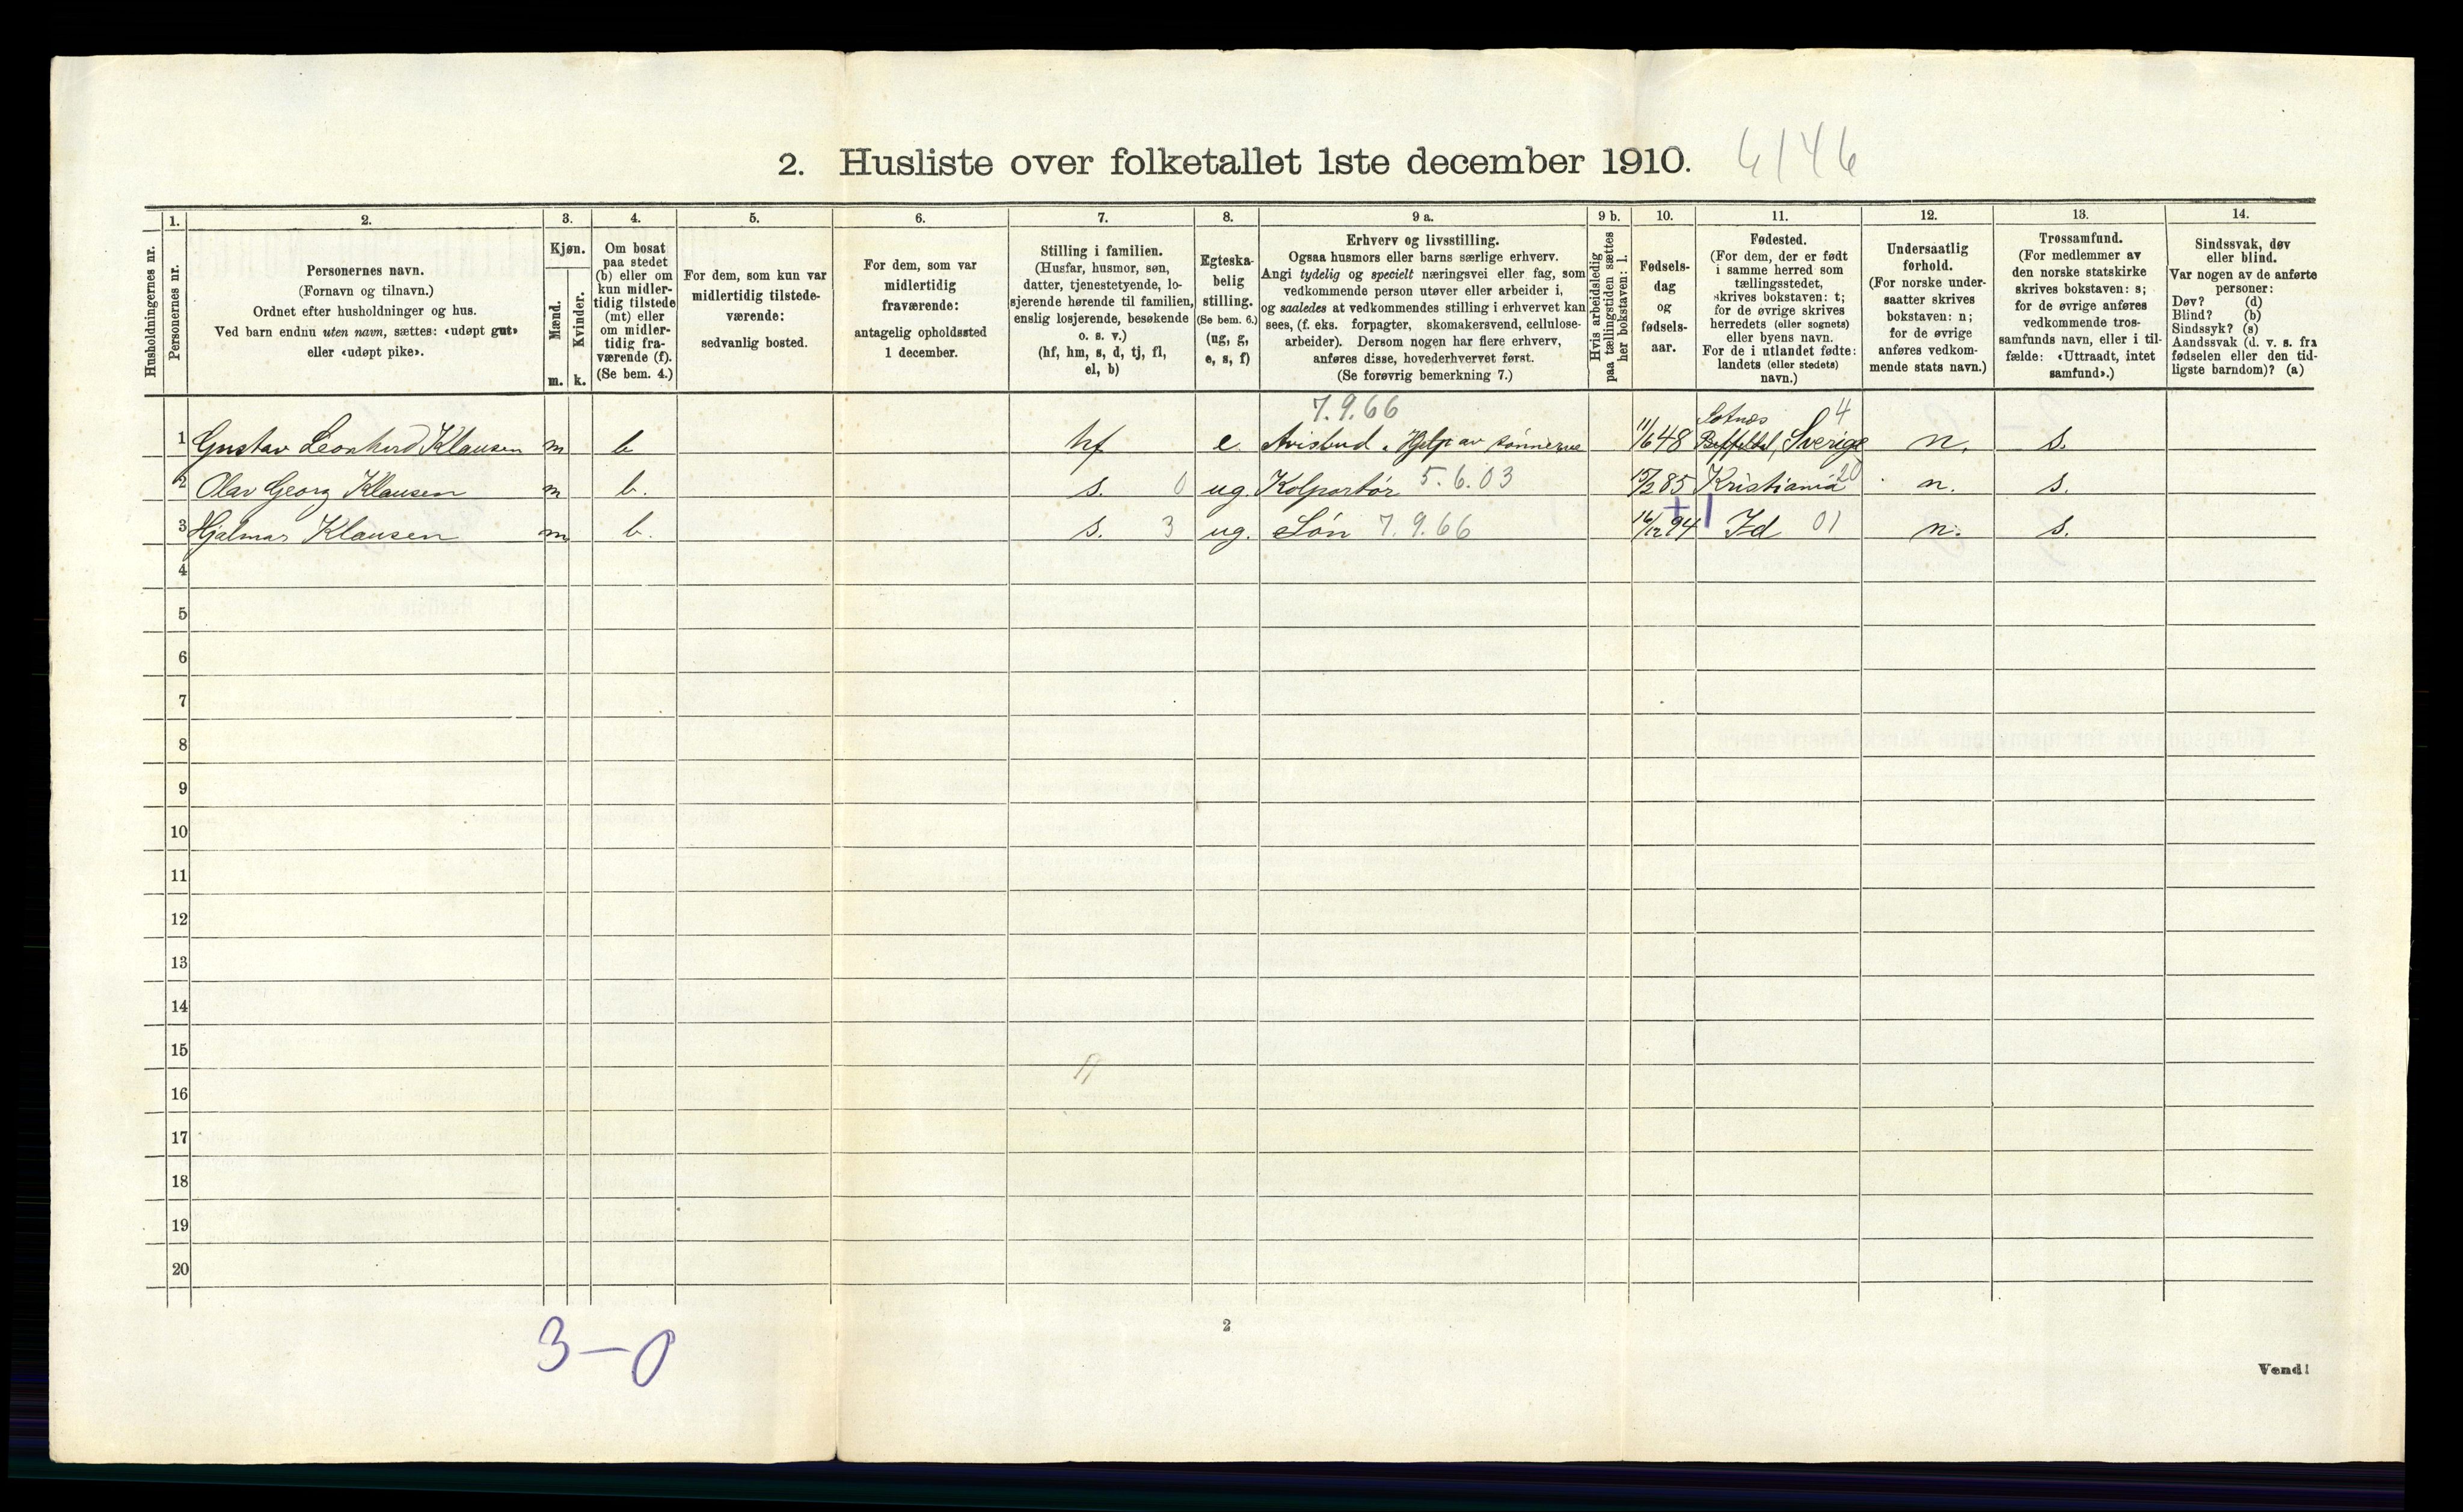 2. Husliste over folketallet 1ste december 1910. 4146
Husholdningernes nr.
1.
Personernes nr.
2.
Personernes navn.
(Fornavn og tilnavn.)
Ordnet efter husholdninger og hus.
Ved barn endnu uten navn, sættes: «udøpt gut»
eller «udøpt pike».
3.
Kjøn.
Mænd.
Kvinder.
m. k.
4.
Om bosat
paa stedet
(b) eller om
kun midler-
tidig tilstede
(mt) eller
om midler-
tidig fra-
værende (f).
(Se bem. 4.)
5.
For dem, som kun var
midlertidig tilstede-
værende:
sedvanlig bosted.
6.
For dem, som var
midlertidig
fraværende:
antagelig opholdssted
1 december.
7.
Stilling i familien.
(Husfar, husmor, søn,
datter, tjenestetyende, lo-
sjerende hørende til familien,
enslig losjerende, besøkende
o. s. v.)
(hf, hm, s, d, tj, fl,
el, b)
8.
Egteska-
belig
stilling.
(Se bem. 6.)
(ug, g,
e, s, f)
9 a.
Erhverv og livsstilling.
Ogsaa husmors eller barns særlige erhverv.
Angi tydelig og specielt næringsvei eller fag, som
vedkommende person utøver eller arbeider i,
og saaledes at vedkommendes stilling i erhvervet kan
sees, (f. eks. forpagter, skomakersvend, cellulose-
arbeider). Dersom nogen har flere erhverv,
anføres disse, hovederhvervet først.
(Se forøvrig bemerkning 7.)
9 b.
Hvis arbeidsledig
paa tællingstiden sættes
her bokstaven: l.
10.
Fødsels-
dag
og
fødsels-
aar.
11.
Fødested.
(For dem, der er født
i samme herred som
tællingsstedet,
skrives bokstaven: t;
for de øvrige skrives
herredets (eller sognets)
eller byens navn.
For de i utlandet fødte:
landets (eller stedets)
navn.)
12.
Undersaatlig
forhold.
(For norske under-
saatter skrives
bokstaven: n;
for de øvrige
anføres vedkom-
mende stats navn.)
13.
Trossamfund.
(For medlemmer av
den norske statskirke
skrives bokstaven: s;
for de øvrige anføres
vedkommende tros-
samfunds navn, eller i til-
fælde: «Uttraadt, intet
samfund».)
14.
Sindssvak, døv
eller blind.
Var nogen av de anførte
personer:
Døv? (d)
Blind? (b)
Sindssyk? (s)
Aandssvak (d. v. s. fra
fødselen eller den tid-
ligste barndom)? (a)
7.9.66
1 Gustav Leonhard Klausen m b hf e. Avisbud. Hjelp av sønnerne 11/6 48 Sverige 4 n. s.
2 Olav Georg Klausen m b. s. 0 ug. Kolportör 5.6.03 15/2 85 Kristiania 20 n. s.
3 Hjalmar Klausen m b. s. 3 ug. Sön 7.9.66 16/12 94 Id 01 n. s.
4
5
6
7
8
9
10
11
12
13
14
15
16
17
18
19
20
3-0
2
Vend!